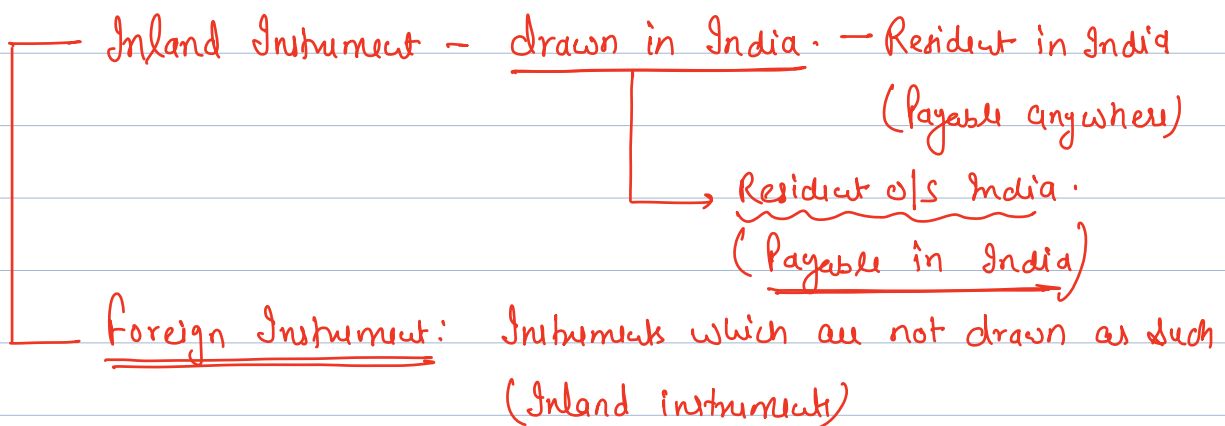 Inland Instrument - drawn in India. - Resident in India
(Payable anywhere)
Resident o/s India.
(Payable in India)
Foreign Instrument: Instruments which are not drawn as such
(Inland instrument)